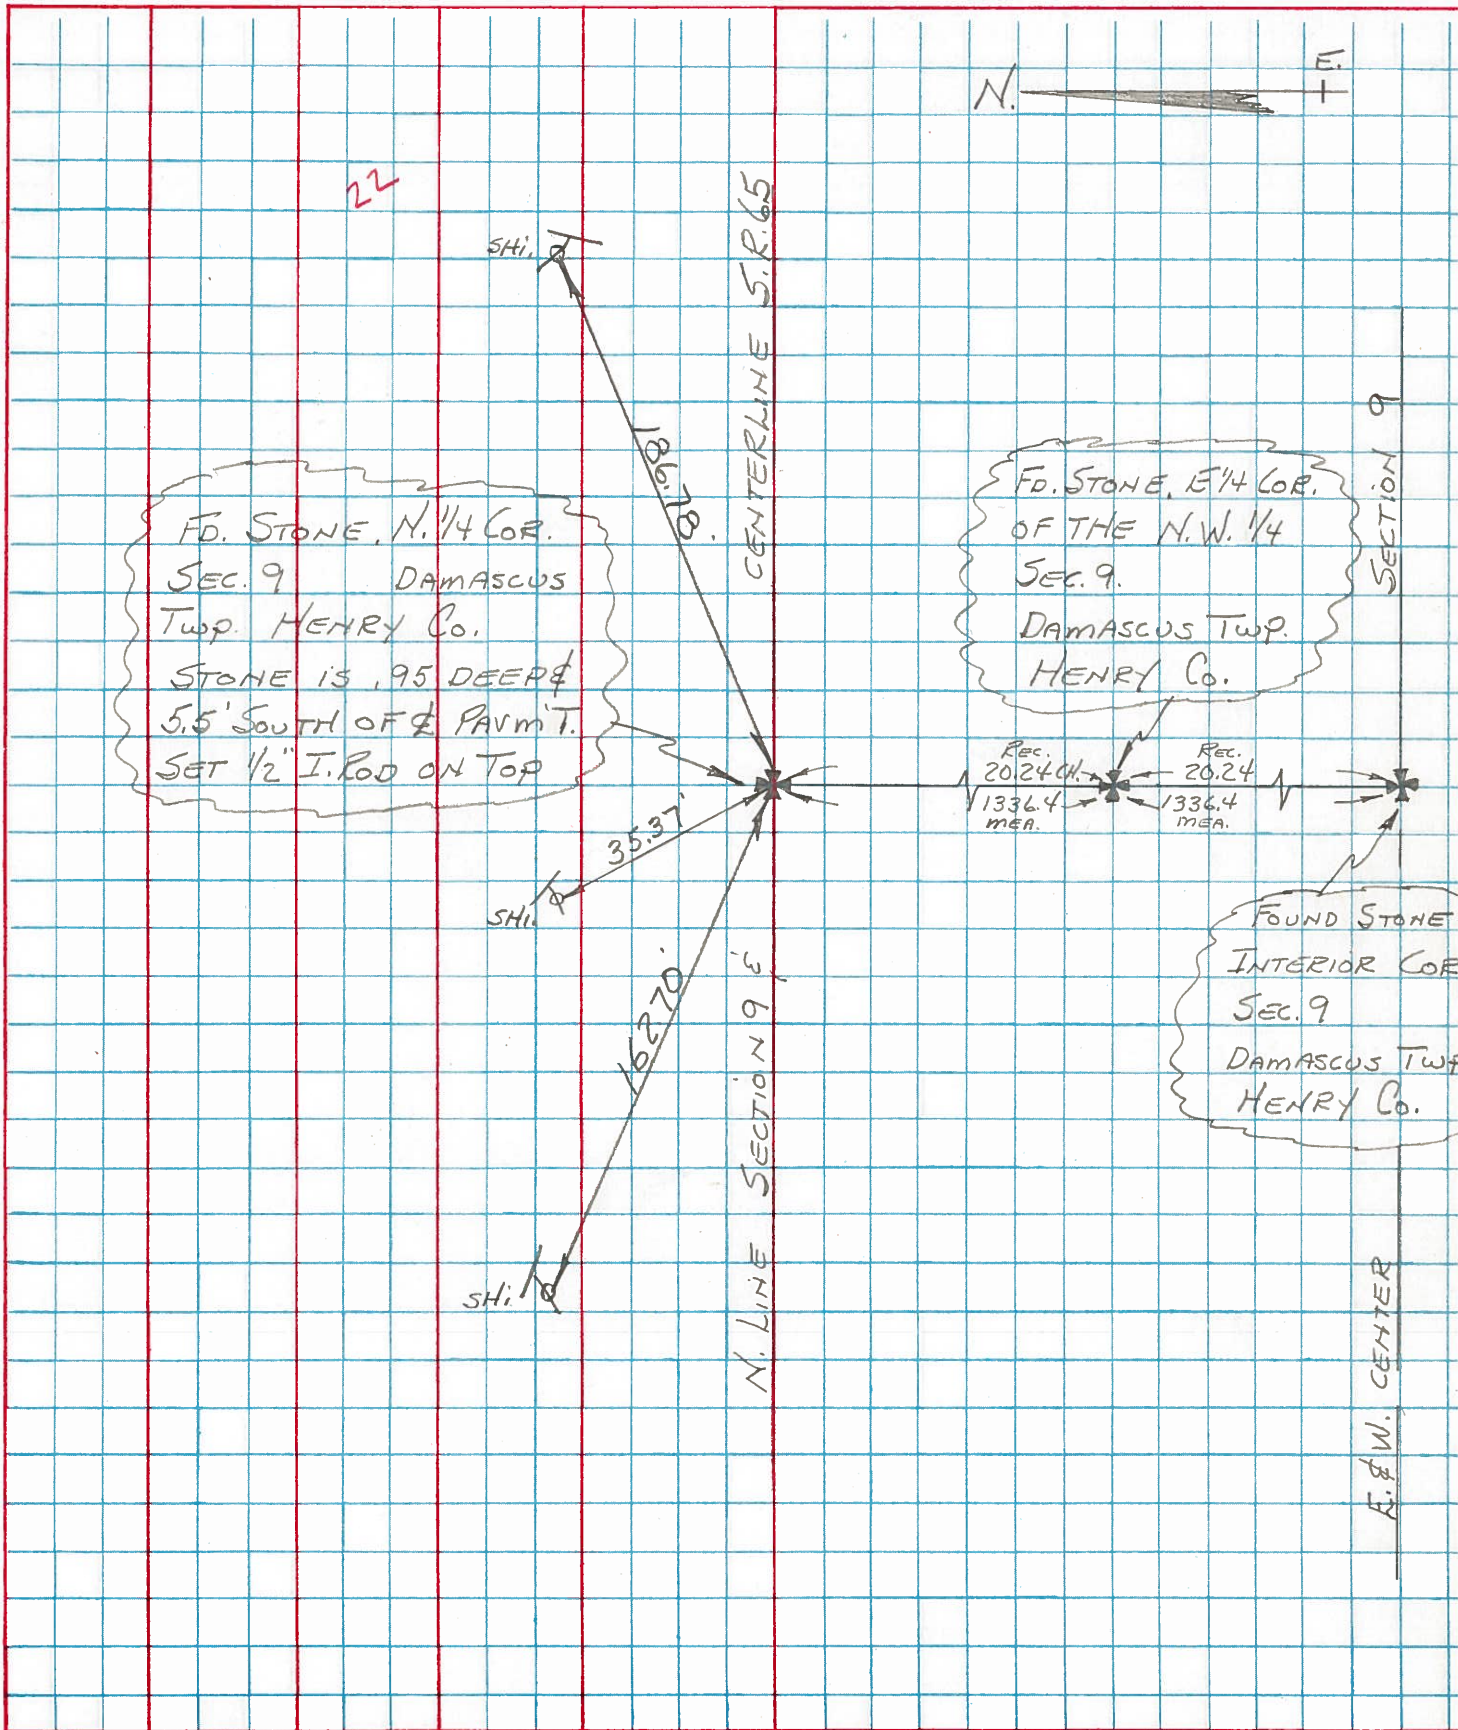 N.
E.
22
SHi.
186.78'
CENTERLINE S.R. 65
SECTION 9
FD. STONE, N. 1/4 COR.
SEC. 9 DAMASCUS
TWP. HENRY CO.
STONE is .95 DEEP &
5.5' SOUTH OF ℄ PAVM'T.
SET 1/2" I. ROD ON TOP
FD. STONE, E 1/4 COR.
OF THE N.W. 1/4
SEC. 9.
DAMASCUS TWP.
HENRY CO.
REC.
20.24 CH.
1336.4
MEA.
REC.
20.24
1336.4
MEA.
35.37'
SHi.
162.70'
SHi.
N. LINE SECTION 9 &
FOUND STONE
INTERIOR COR
SEC. 9
DAMASCUS TWP
HENRY CO.
E. & W. CENTER